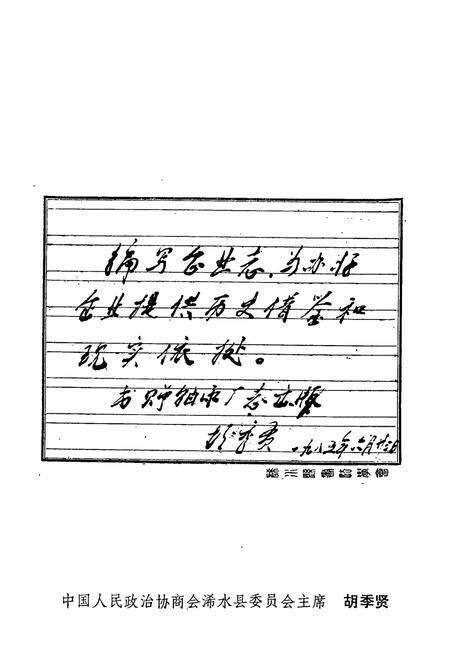 编写企业志，为办好
企业提供历史借鉴和
现实依据。
书赠轴承厂志出版
胡季贤 一九八五年六月廿三日
中国人民政治协商会浠水县委员会主席 胡季贤